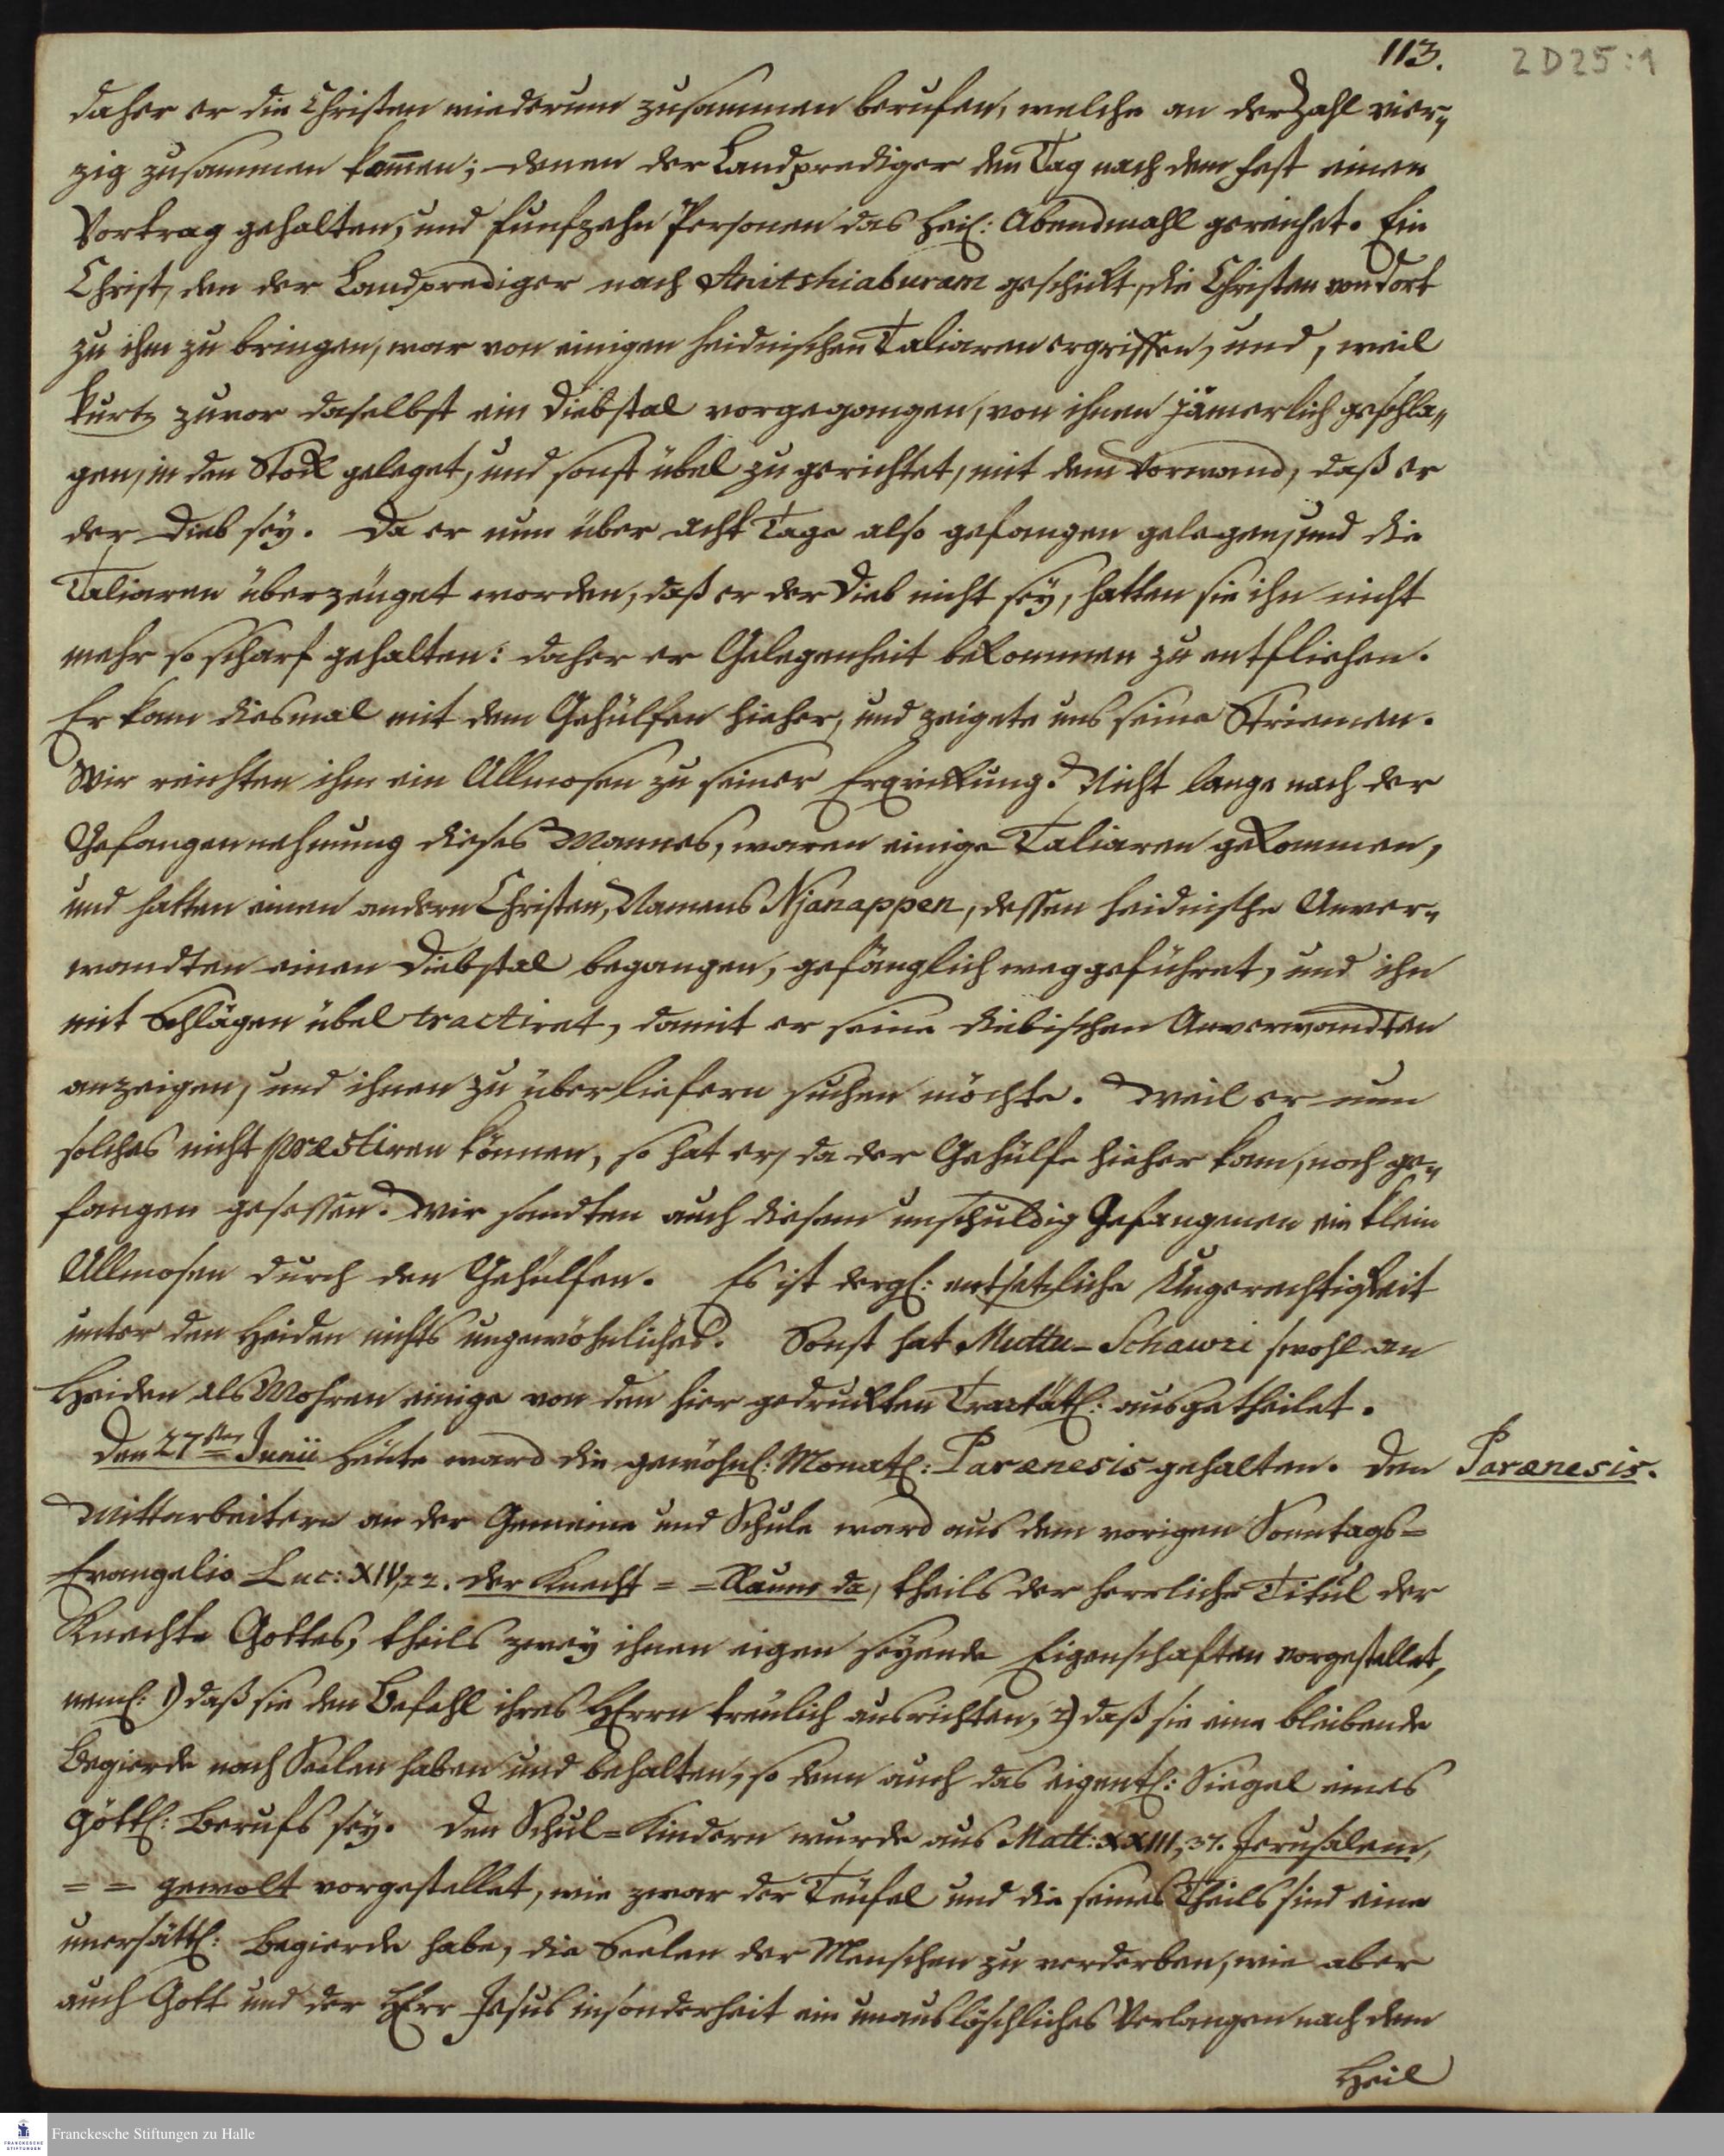 113.
2D25:1
daher er die Christen wiederum zusammen berufen, welche an der Zahl vier„
zig zusammen kom̄en; denen der Landprediger den Tag nach dem Fest einen
Vortrag gehalten, und funfzehn Personen das Heil: Abendmahl gereichet. Ein
Christ, den der Landprediger nach Anitshiaburam geschickt, die Christen von dort
zu ihm zu bringen, war von einigen heidnischen Taliaren ergriffen, und, weil
kurtz zuvor daselbst ein Diebstal vorgegangen, von ihnen jämerlich geschla„
gen, in den Stock geleget, und sonst übel zugerichtet, mit dem Vorwand, daß er
der Dieb sey. Da er nun über acht Tage also gefangen gelegen, und die
Taliaren überzeuget worden, daß er der Dieb nicht sey, hatten sie ihn nicht
mehr so scharf gehalten: daher er Gelegenheit bekommen zu entfliehen.
Er kam diesmal mit dem Gehülfen hieher, und zeigete uns seine Striemen.
Wir reichten ihm ein Allmosen zu seiner Erquickung. Nicht lange nach der
Gefangennehmung dieses Mannes, waren einige Taliaren gekommen,
und hatten einen andern Christen, Namens Njanappen, dessen heidnische Anver„
wandten einen Diebstal begangen, gefänglich weggeführet, und ihn
mit Schlägen übel tractiret, damit er seine diebischen Anverwandten
anzeigen, und ihnen zu überliefern suchen möchte. Weil er nun
solches nicht præstiren können, so hat er, da der Gehülfe hieher kam, noch ge„
fangen gesessen. Wir sandten auch diesem unschuldig Gefangenen ein klein
Allmosen durch den Gehülfen. Es ist dergl: entsetzliche Ungerechtigkeit
unter den Heiden nichts ungewöhnliches. Sonst hat Muttu-Schawri sowohl an
Heiden als Mohren einige von den hier gedruckten Tractätl: ausgetheilet.
Den 27sten Junii Heute ward die gewöhnl: Monatl: Parænesis gehalten. Den
Parænesis.
Mittarbeitern an der Gemeine und Schule ward aus dem vorigen Sonntags=
Evangelio Luc: XIV, 22. der Knecht = = Raum da, theils der herrliche Titul der
Knechte Gottes, theils zwey ihnen eigen seyende Eigenschaften vorgestellet,
neml: 1) daß sie den Befehl ihres HErrn treulich ausrichten, 2) daß sie eine bleibende
Begierde nach Seelen haben und behalten, so denn auch das eigentl: Siegel eines
Göttl: Berufs sey. Den Schul=Kindern wurde aus Matt: XXIII, 37. Jerusalem,
= = gewolt vorgestellet, wie zwar der Teufel und die seines Theils sind eine
unersättl: Begierde habe, die Seelen der Menschen zu verderben, wie aber
auch Gott und der HErr Jesus insonderheit ein unauslöschliches Verlangen nach dem
Heil
FRANCKESCHE
STIFTUNGEN
Franckesche Stiftungen zu Halle